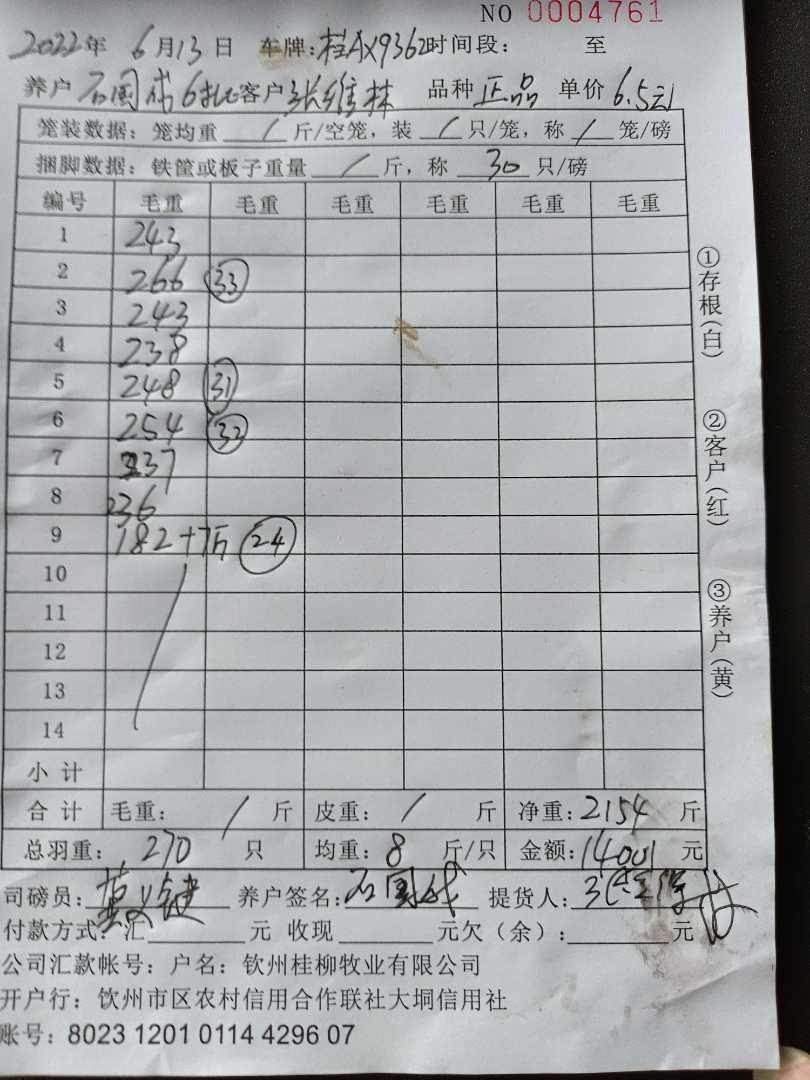 NO 0004761
2022年 6月13日 车牌:桂AX9362时间段: 至
养户 石国成 6批 客户 张维林 品种 正品 单价 6.5元
笼装数据: 笼均重 / 斤/空笼, 装 / 只/笼, 称 / 笼/磅
捆脚数据: 铁筐或板子重量 / 斤, 称 30 只/磅
编号 毛重 毛重 毛重 毛重 毛重 毛重
1 243
2 266 33
3 243
4 238
5 248 31
6 254 32
7 237
8 236
9 182+7斤 24
10
11
12
13
14
小计
合计 毛重: / 斤 皮重: / 斤 净重: 2154 斤
总羽重: 270 只 均重: 8 斤/只 金额: 14001 元
司磅员: 养户签名: 石国成 提货人:
付款方式: 汇 元 收现 元欠(余): 元
公司汇款帐号: 户名: 钦州桂柳牧业有限公司
开户行: 钦州市区农村信用合作联社大垌信用社
账号: 8023 1201 0114 4296 07
①存根(白)
②客户(红)
③养户(黄)